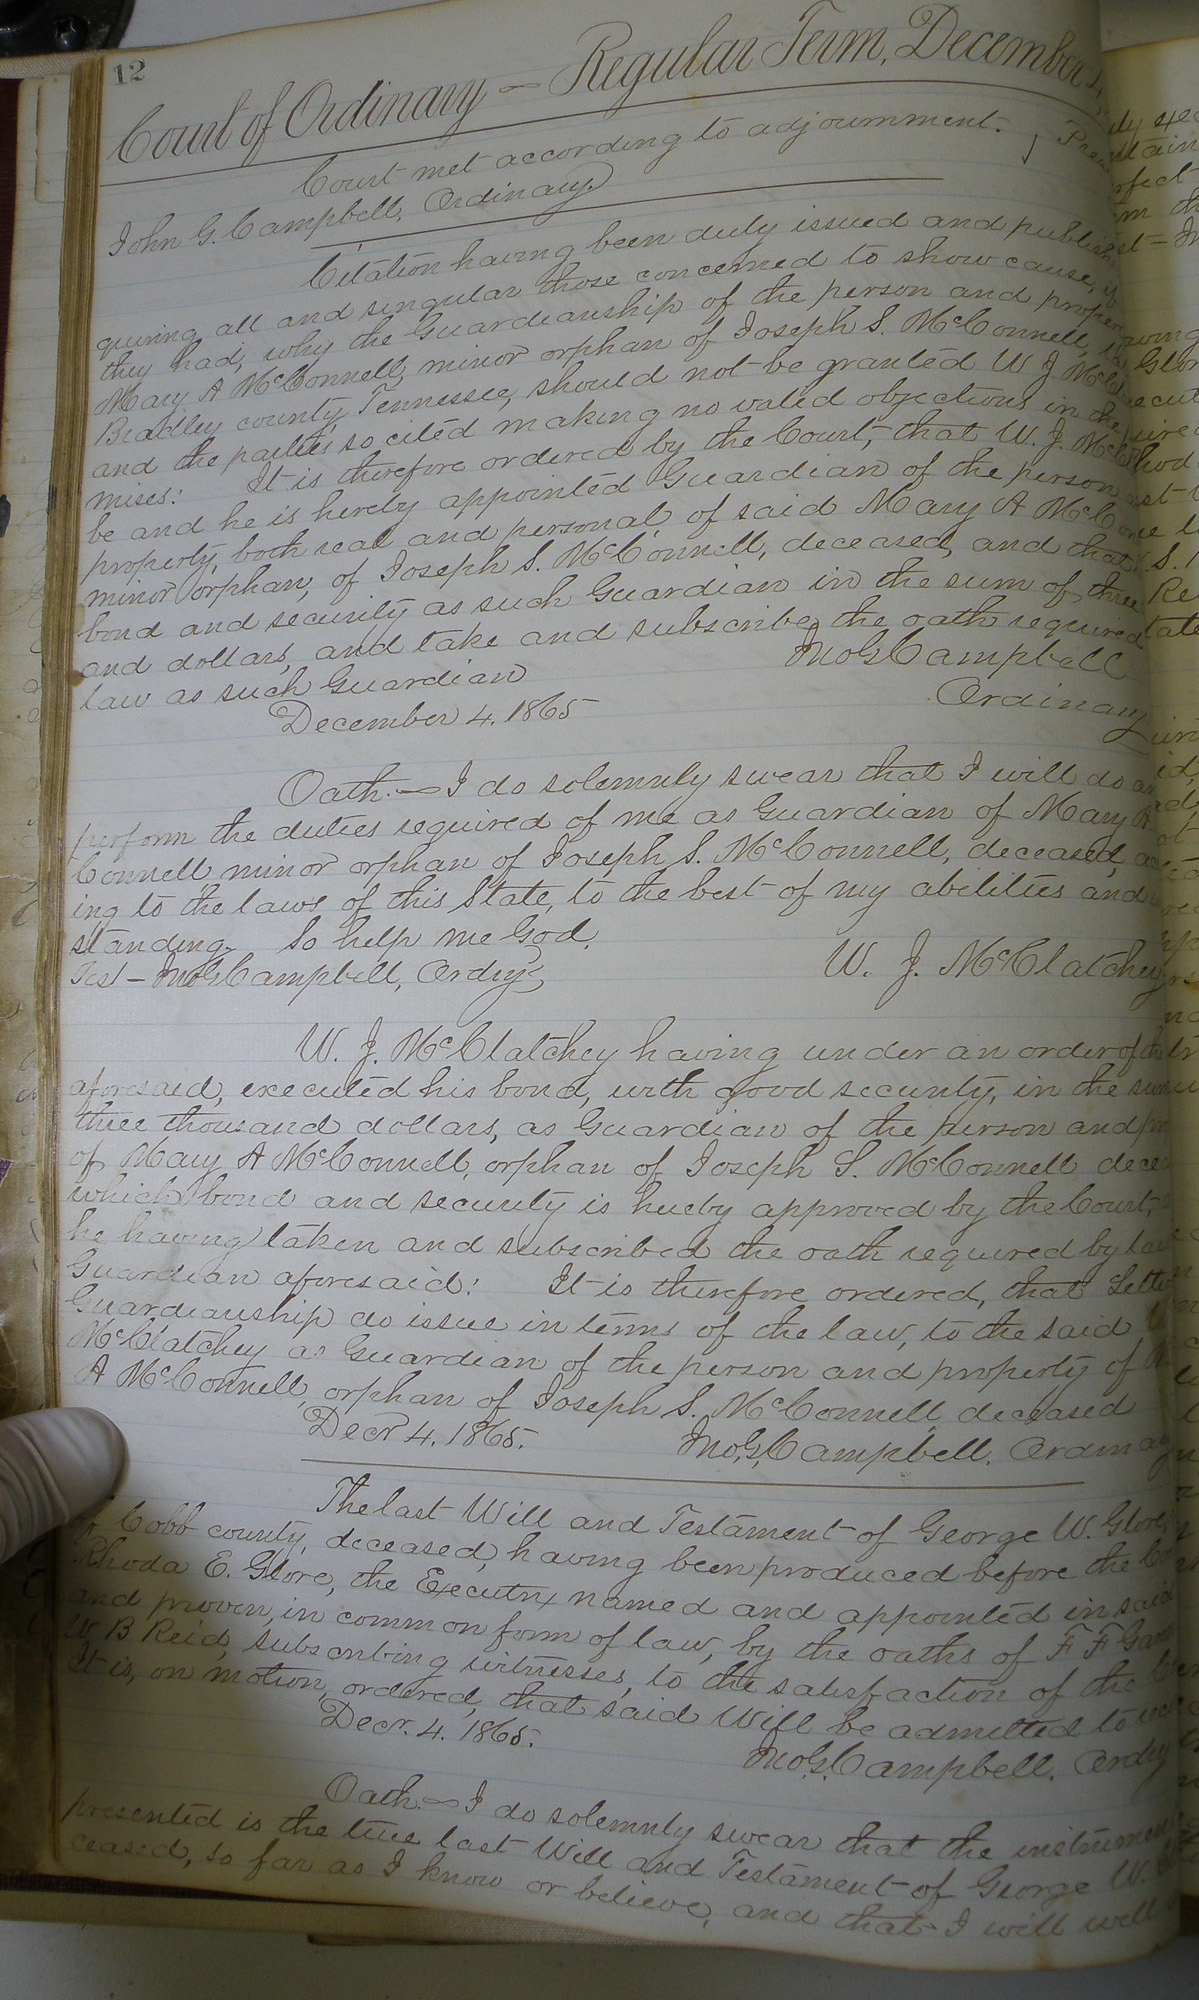 12
Court of Ordinary — Regular Term, December
Court met according to adjournment.
John G. Campbell, Ordinary.
Citation having been duly issued and
quiring all and singular those concerned to show cause, if
they had, why the Guardianship of the person and
Mary A McConnell, minor orphan of Joseph S. McConnell,
Bradley county, Tennessee, should not be granted W J
and the parties so cited making no valid objections in the
mises: It is therefore ordered by the Court, that W. J.
be and he is hereby appointed Guardian of the person
property, both real and personal, of said Mary A
minor orphan, of Joseph S. McConnell, deceased, and that
bond and security as such Guardian in the sum of three
and dollars, and take and subscribe, the oath required
law as such Guardian
December 4. 1865
Jno G. Campbell
Ordinary
Oath.— I do solemnly swear that I will do
perform the duties required of me as Guardian of Mary A
Connell minor orphan of Joseph S. McConnell, deceased,
ing to the laws of this State, to the best of my abilities and
standing. So help me God.
Test — Jno G. Campbell, Ordry.
W. J. McClatchey
W. J. McClatchey having under an order of the
aforesaid, executed his bond, with good security, in the
three thousand dollars, as Guardian of the person and
of Mary A McConnell, orphan of Joseph S. McConnell
which bond and security is hereby approved by the Court,
he having taken and subscribed the oath required by
Guardian aforesaid: It is therefore ordered, that
Guardianship do issue in terms of the law, to the said
McClatchey as Guardian of the person and property of
A McConnell, orphan of Joseph S. McConnell deceased
Decr 4. 1865.
Jno. G. Campbell. Ordinary
The last Will and Testament of George W. Glore,
of Cobb county, deceased, having been produced before the
Rhoda E. Glore, the Executrix named and appointed in said
and proven, in common form of law, by the oaths of F F
W B Reid, subscribing witnesses, to the satisfaction of the
It is, on motion, ordered, that said Will be admitted to
Decr. 4. 1865.
Jno. G. Campbell. Ordry
Oath.— I do solemnly swear that the
presented is the true last Will and Testament of George W.
ceased, so far as I know or believe, and that I will well